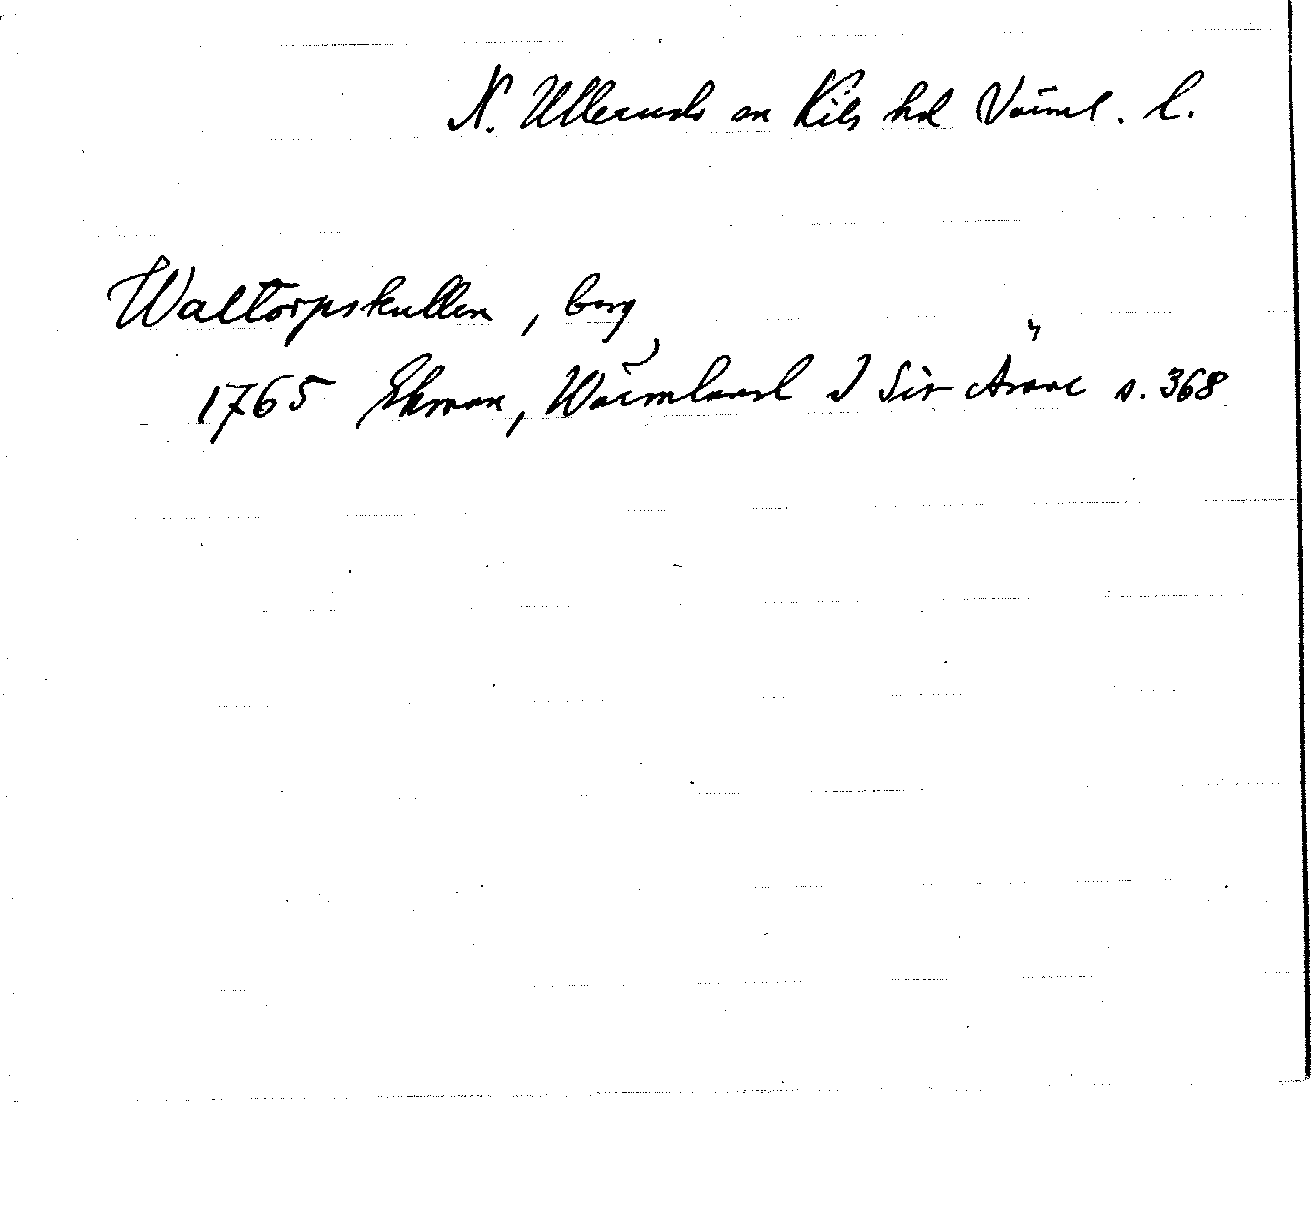 N. Ulleruds sn Kils hd Värml. l.
Waltorpskullen, berg
1765 Ekman, Wärmland I Sir s. 368